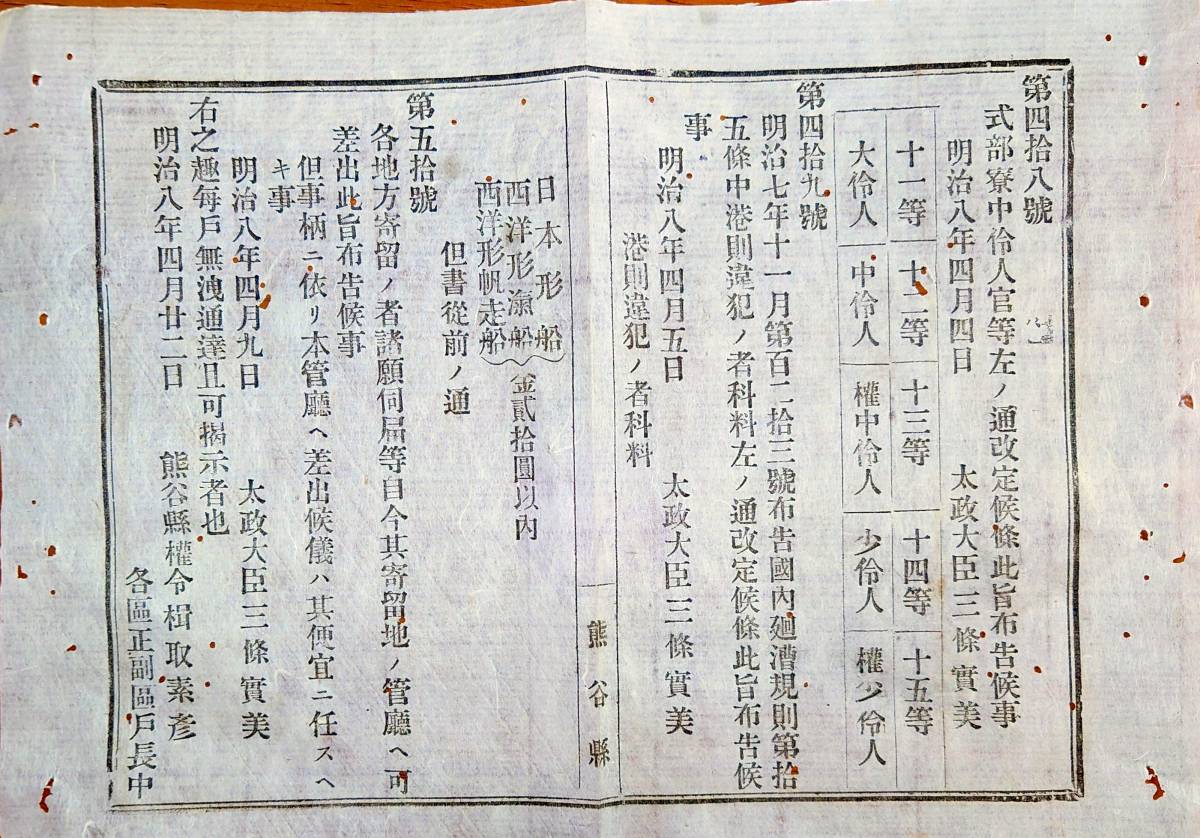 第四拾八號
式部寮中伶人官等左ノ通改定候條此旨布告候事
明治八年四月四日 太政大臣三條實美
十一等 十二等 十三等 十四等 十五等
大伶人 中伶人 權中伶人 少伶人 權少伶人
第四拾九號
明治七年十一月第百二拾三號布告國內廻漕規則第拾
五條中港則違犯ノ者科料左ノ通改定候條此旨布告候
事
明治八年四月五日 太政大臣三條實美
港則違犯ノ者科料
熊谷縣
日本形船
西洋形漁船
西洋形帆走船
金貳拾圓以內
但書從前ノ通
第五拾號
各地方寄留ノ者諸願伺屆等自今其寄留地ノ管廳ヘ可
差出此旨布告候事
但事柄ニ依リ本管廳ヘ差出候儀ハ其便宜ニ任スヘ
キ事
明治八年四月九日 太政大臣三條實美
右之趣每戶無洩通達且可揭示者也
明治八年四月廿二日 熊谷縣權令楫取素彥
各區正副區戶長中